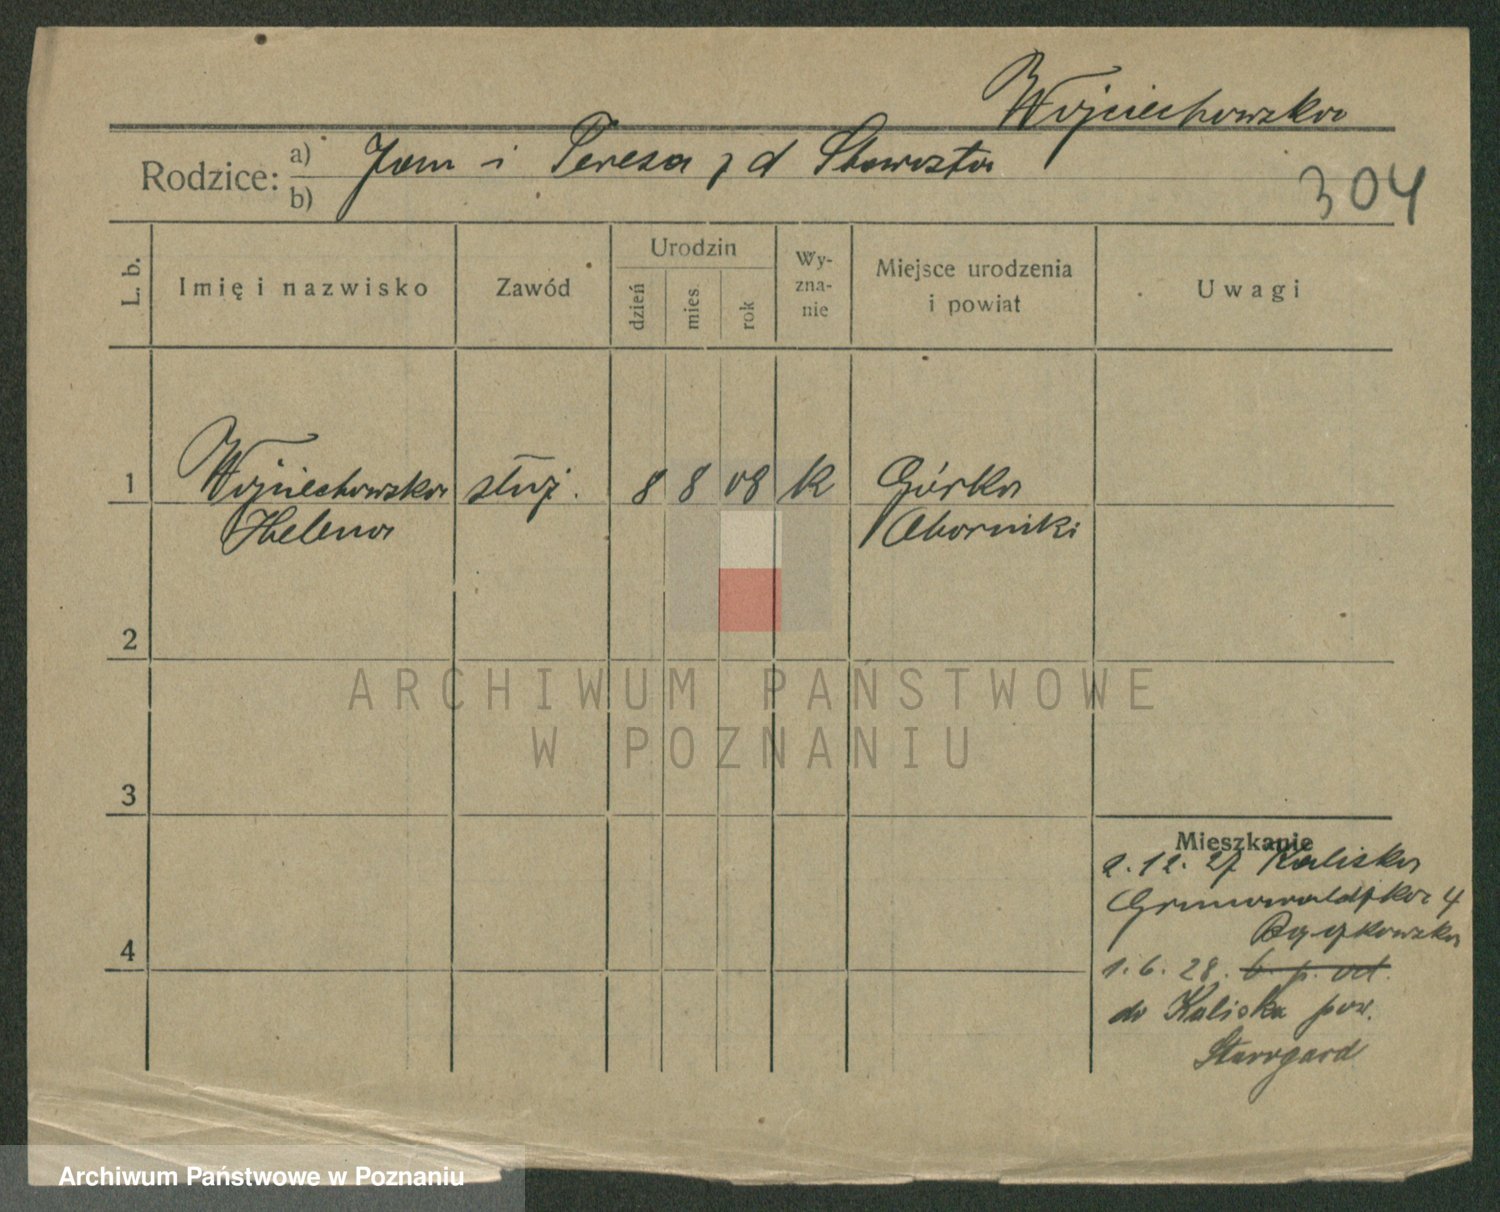 Wojciechowska
Rodzice: a) Jan i Teresa z d
b)
304
L. b.
Imię i nazwisko
Zawód
Urodzin
dzień
mies.
rok
Wy-
zna-
nie
Miejsce urodzenia
i powiat
Uwagi
1 Wojciechowska służ. 8 8 08 k Górka
Helena Oborniki
2
ARCHIWUM PAŃSTWOWE
W POZNANIU
3
Mieszkanie
2. 12. 27 Kaliska
Grunwaldzka 4
4
1. 6. 28. b. p. od.
do Kaliska pow.
Starogard
Archiwum Państwowe w Poznaniu